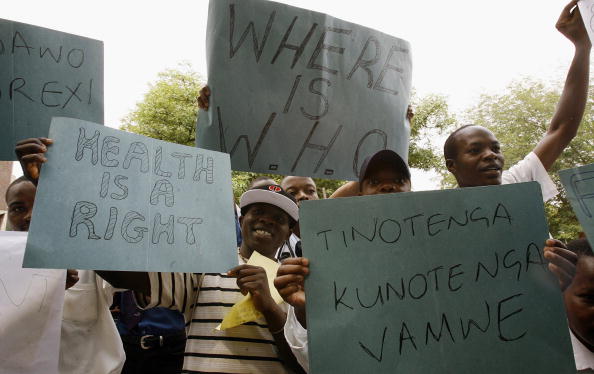 DAWO
OREX!
WHERE
IS
W.H.O
HEALTH
IS A
RIGHT
TINOTENGA
KUNOTENGA
VAMWE